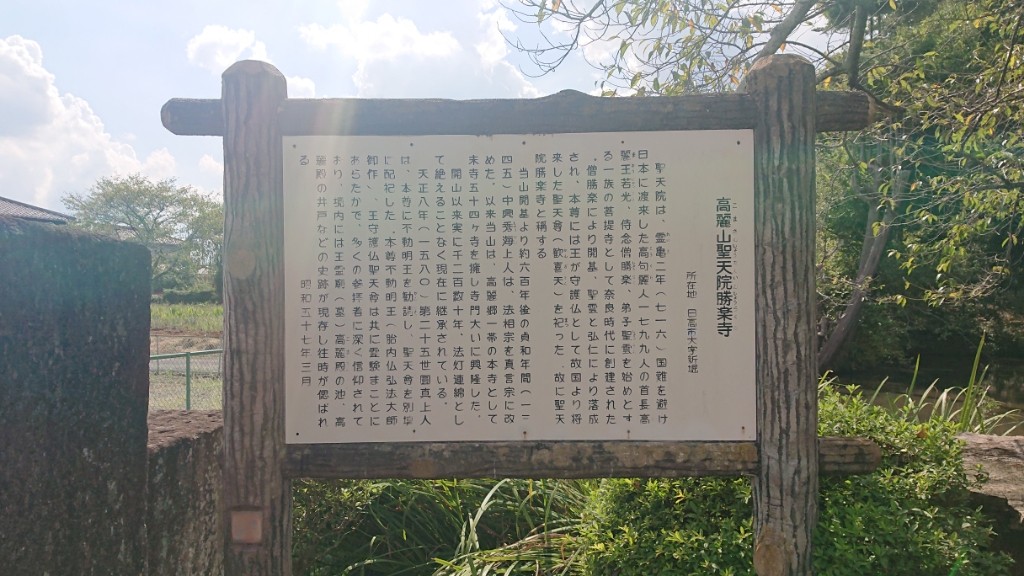 高麗山聖天院勝楽寺
所在地 日高市大字新堀
聖天院は、霊亀二年(七一六)、国難を避け
日本に渡来した高句麗人一七九九人の首長高
麗王若光、侍念僧勝楽、弟子聖雲を始めとす
る一族の菩提寺として奈良時代に創建された
。僧勝楽により開基、聖雲と弘仁により落成
され、本尊には王が守護仏として故国より将
来した聖天尊(歓喜天)を祀った 故に聖天
院勝楽寺と称する
当山開基より約六百年後の貞和年間(一三
四五)中興秀海上人は、法相宗を真言宗に改
めた、以来当山は、高麗郷一帯の本寺として
末寺五十四ヶ寺を擁し寺門大いに興隆した、
開山以来実に千二百数十年、法灯連綿とし
て絶えることなく現在に継承されている。
天正八年(一五八〇)第二十五世圓真上人
は、本尊に不動明王を勧請し、聖天尊を別壇
に配祀した、本尊不動明王(胎内仏弘法大師
御作)、王守護仏聖天尊は共に霊験まことに
あらたかで、多くの参拝者に深く信仰されて
おり、境内には王霊廟(墓)高麗殿の池、高
麗殿の井戸などの史跡が現存し往時が偲ばれ
る 昭和五十七年三月